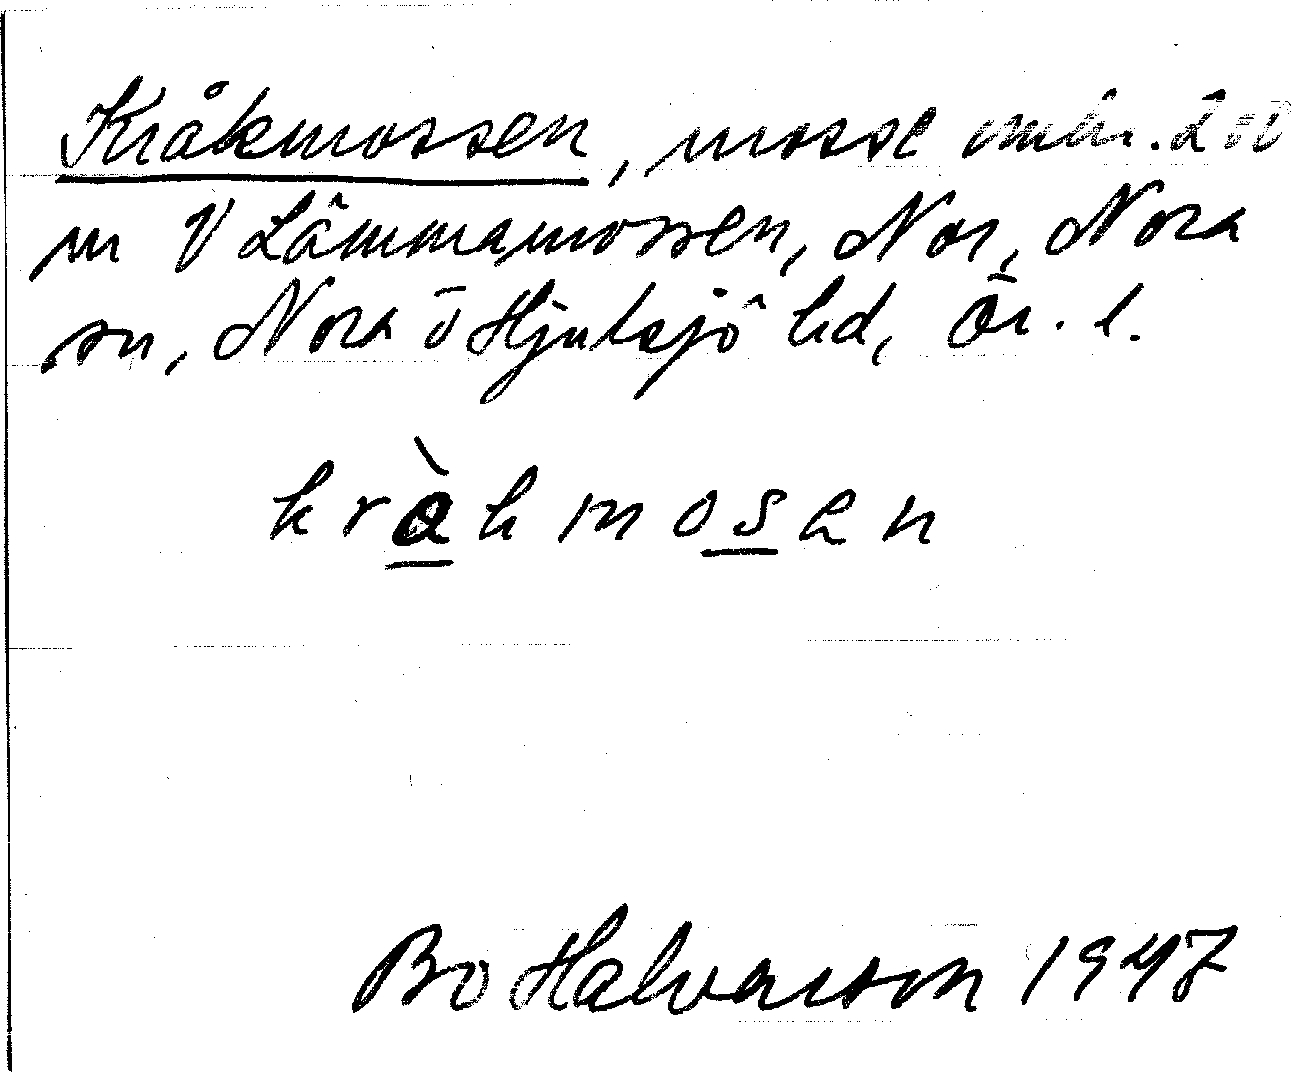 Kråkmossen, mosse omkr. 200
m V Lämmamossen, Nor, Nora
sn, Nora o Hjulsjö hd, Ör. l.
kràkmosen
Bo Halvarson 1947